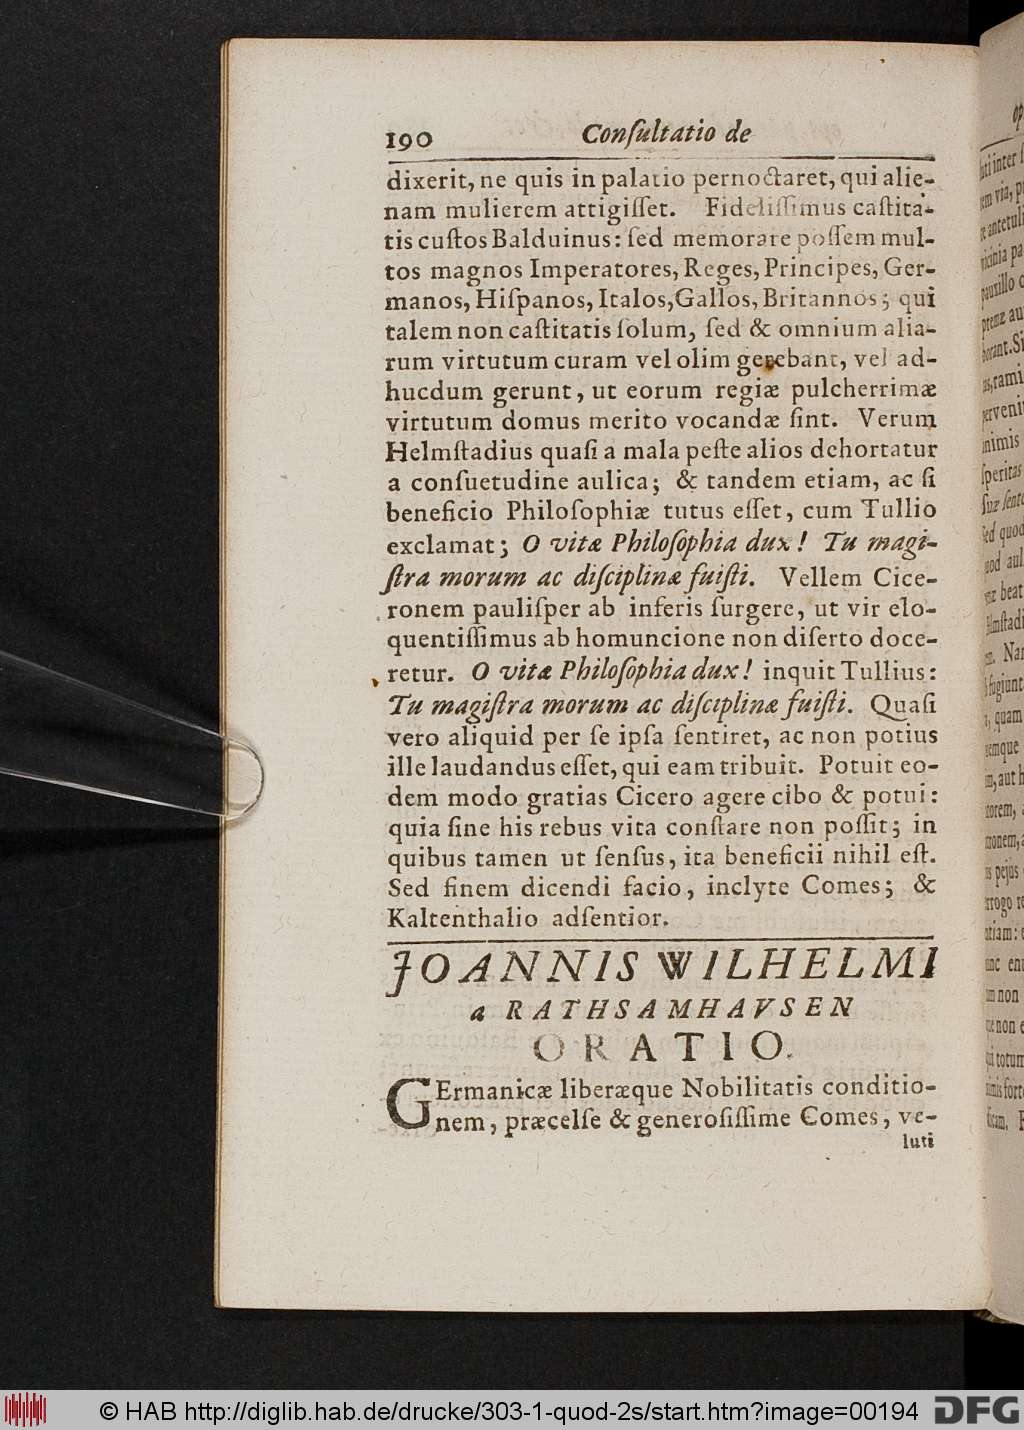 190 Conſultatio de
dixerit, ne quis in palatio pernoctaret, qui alie-
nam mulierem attigiſſet. Fideliſſimus caſtita-
tis cuſtos Balduinus: ſed memorare poſſem mul-
tos magnos Imperatores, Reges, Principes, Ger-
manos, Hiſpanos, Italos, Gallos, Britannos; qui
talem non caſtitatis ſolum, ſed & omnium alia-
rum virtutum curam vel olim gerebant, vel ad-
hucdum gerunt, ut eorum regiæ pulcherrimæ
virtutum domus merito vocandæ ſint. Verum
Helmſtadius quaſi a mala peſte alios dehortatur
a conſuetudine aulica; & tandem etiam, ac ſi
beneficio Philoſophiæ tutus eſſet, cum Tullio
exclamat; O vitæ Philoſophia dux! Tu magi-
ſtra morum ac diſciplinæ fuiſti. Vellem Cice-
ronem pauliſper ab inferis ſurgere, ut vir elo-
quentiſſimus ab homuncione non diſerto doce-
retur. O vitæ Philoſophia dux! inquit Tullius:
Tu magiſtra morum ac diſciplinæ fuiſti. Quaſi
vero aliquid per ſe ipſa ſentiret, ac non potius
ille laudandus eſſet, qui eam tribuit. Potuit eo-
dem modo gratias Cicero agere cibo & potui:
quia ſine his rebus vita conſtare non poſſit; in
quibus tamen ut ſenſus, ita beneficii nihil eſt.
Sed finem dicendi facio, inclyte Comes; &
Kaltenthalio adſentior.
JOANNIS WILHELMI
a RATHSAMHAVSEN
ORATIO.
GErmanicæ liberæque Nobilitatis conditio-
nem, præcelſe & generoſiſſime Comes, ve-
luti
© HAB http://diglib.hab.de/drucke/303-1-quod-2s/start.htm?image=00194
DFG